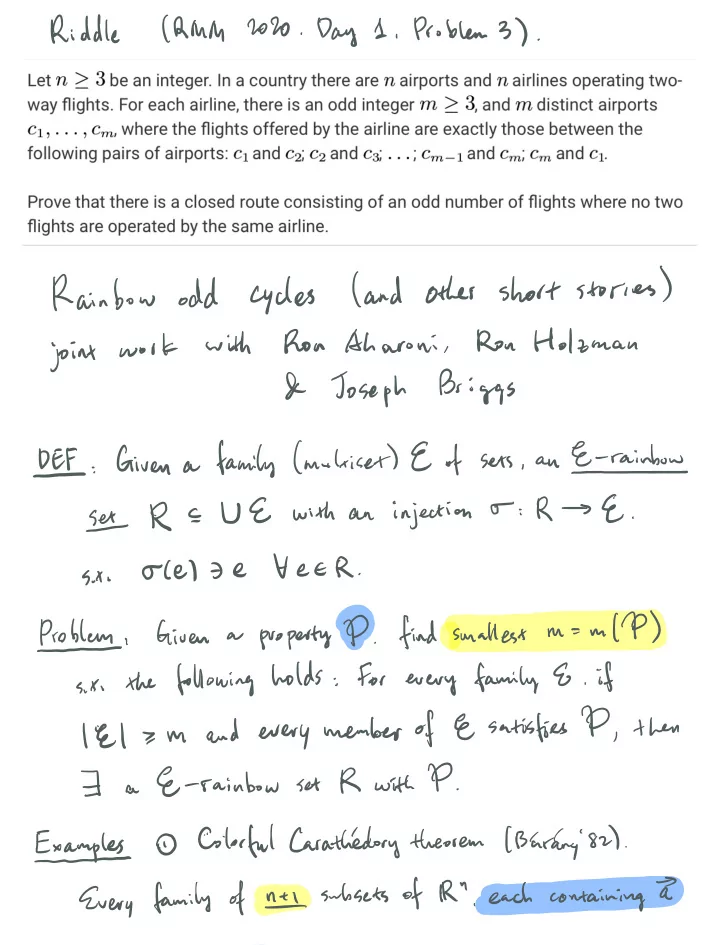 Riddle (RMM 2020. Day 1. Problem 3).
Let n ≥ 3 be an integer. In a country there are n airports and n airlines operating two-
way flights. For each airline, there is an odd integer m ≥ 3, and m distinct airports
c₁, . . . , cₘ, where the flights offered by the airline are exactly those between the
following pairs of airports: c₁ and c₂; c₂ and c₃; . . . ; cₘ₋₁ and cₘ; cₘ and c₁.
Prove that there is a closed route consisting of an odd number of flights where no two
flights are operated by the same airline.
Rainbow odd cycles (and other short stories)
joint work with Ron Aharoni, Ron Holzman
& Joseph Briggs
DEF: Given a family (multiset) ℰ of sets, an ℰ-rainbow
set R ⊆ ∪ℰ with an injection σ: R → ℰ.
s.t. σ(e) ∋ e ∀e∈R.
Problem. Given a property P. find smallest m = m(P)
s.t. the following holds: For every family ℰ. if
|ℰ| ≥ m and every member of ℰ satisfies P, then
∃ a ℰ-rainbow set R with P.
Examples ① Colorful Carathéodory theorem (Bárány '82).
Every family of n+1 subsets of ℝⁿ, each containing a⃗